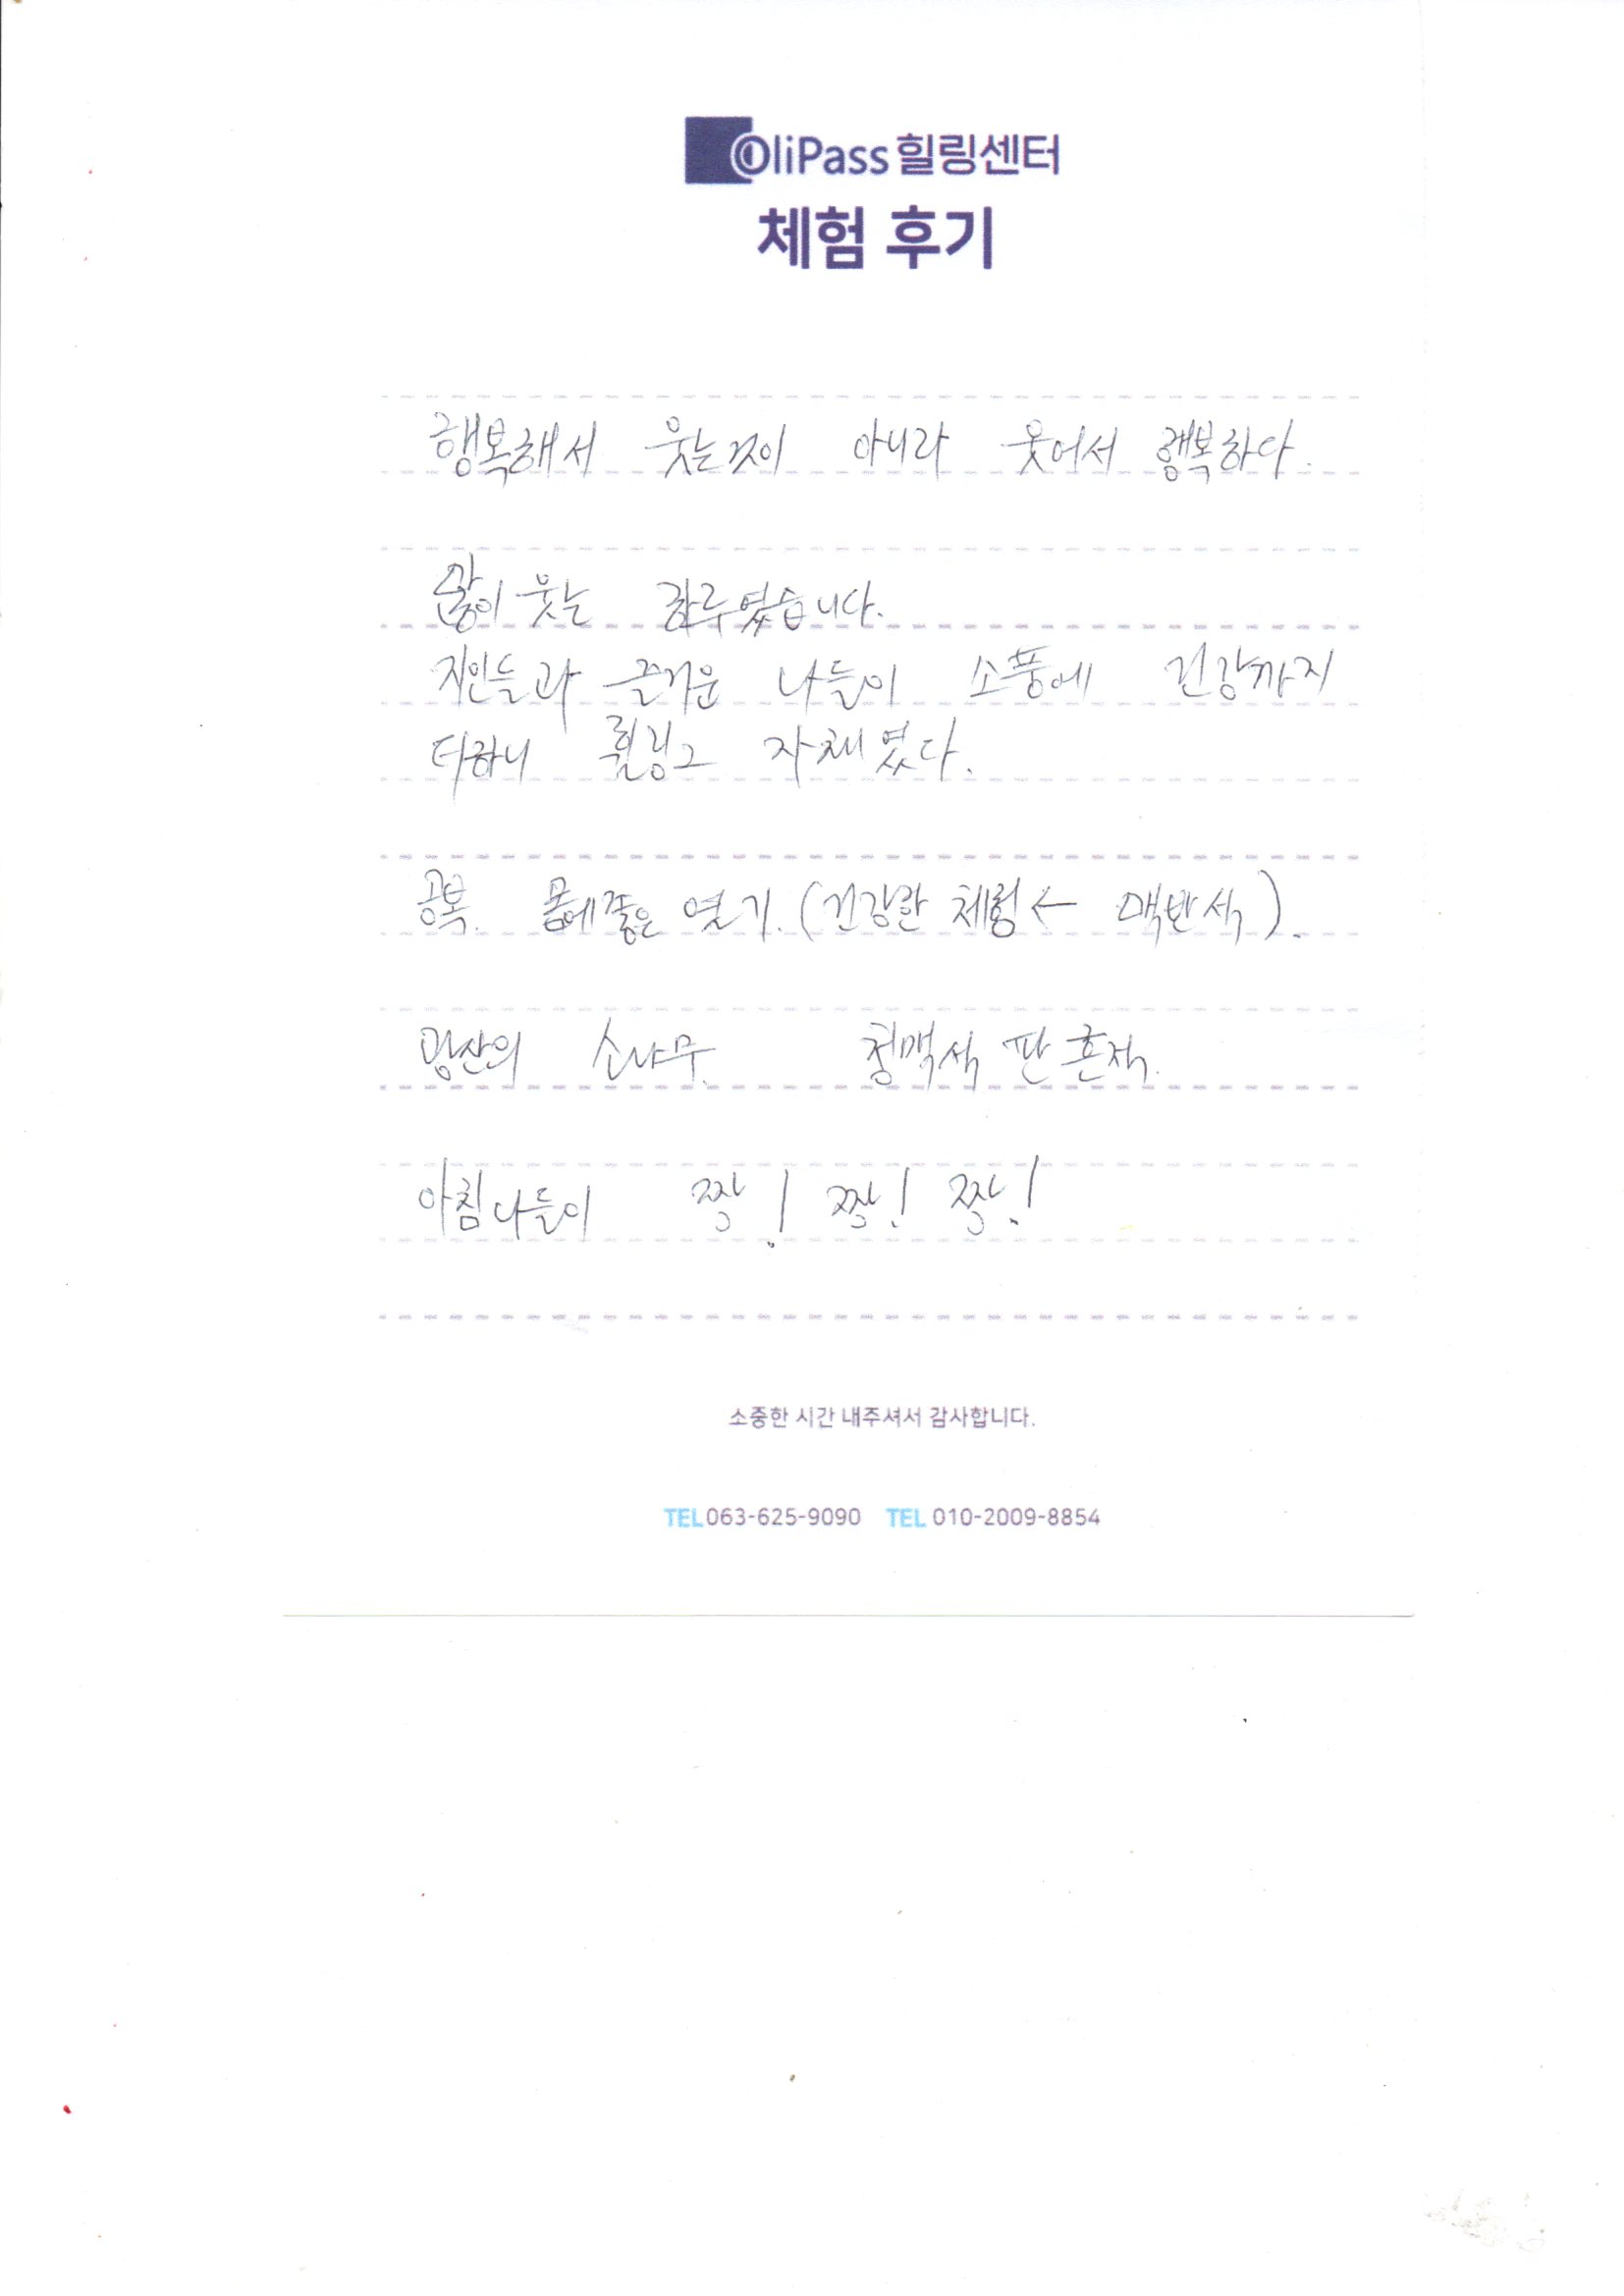 OliPass 힐링센터
체험 후기
행복해서 웃는것이 아니라 웃어서 행복하다.
많이 웃는 하루였습니다.
지인들과 즐거운 나들이 소풍에 건강까지
더하니 휠링그 자체였다.
공복. 몸에좋은 열기. (건강한 체험← 맥반석).
광산의 소나무. 청맥석 판 흔적.
아침나들이 짱! 짱! 짱!
소중한 시간 내주셔서 감사합니다.
TEL 063-625-9090 TEL 010-2009-8854